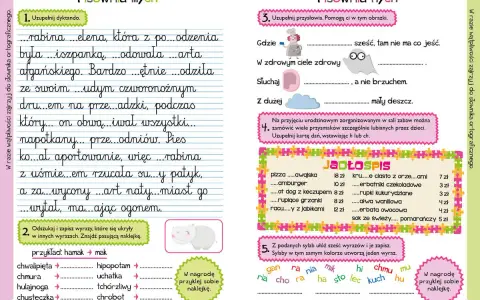 W razie wątpliwości zajrzyj do słownika ortograficznego.
1. Uzupełnij dyktando.
...rabina ...elena, która z po...odzenia
była ...iszpanką, ...odowała ...arta
afgańskiego. Bardzo ...ętnie ...odziła
ze swoim ...udym czworonożnym
dru...em na prze...adzki, podczas
który... on obwą...iwał wszystki...
napotkany... prze...odniów. Pies
ko...ał aportowanie, więc ...rabina
z uśmie...em rzucała su...y patyk,
a za...wycony ...art naty...miast go
...wytał, ma...ając ogonem.
2. Odszukaj i zapisz wyrazy, które się ukryły
w innych wyrazach. Znajdź pasującą naklejkę.
przykład: hamak → mak
chwalipięta → hipopotam →
chmura → uchatka →
hulajnoga → tchórzliwy →
chusteczka → chrobot →
W nagrodę
przyklej sobie
naklejkę.
3. Uzupełnij przysłowia. Pomogą ci w tym obrazki.
Gdzie sześć, tam nie ma co jeść.
W zdrowym ciele zdrowy
Słuchaj , a nie brzuchem.
Z dużej mały deszcz.
4. Na przyjęciu urodzinowym zorganizowanym w sali zabaw można
zamówić wiele przysmaków szczególnie lubianych przez dzieci.
Uzupełnij kartę dań, wstawiając h lub ch.
Jadłospis
pizza ...awajska 8 zł
...amburger 10 zł
...ot dog z keczupem 8 zł
...rupiące grzanki 2 zł
racu...y z jabłkami 12 zł
kru...e ciasto z orze...ami 7 zł
...erbatniki czekoladowe 3 zł
...rupki kukurydziane 3 zł
...ałwa waniliowa 4 zł
...erbata owocowa 4 zł
sok ze świeży... pomarańczy 5 zł
5. Z podanych sylab ułóż sześć wyrazów i je zapisz.
Sylaby w tym samym kolorze utworzą jeden wyraz.
gan ra nia mak hi chmu mu
na cho ra ha sto lec kuch hu
W nagrodę
przyklej sobie
naklejkę.
W razie wątpliwości zajrzyj do słownika ortograficznego.